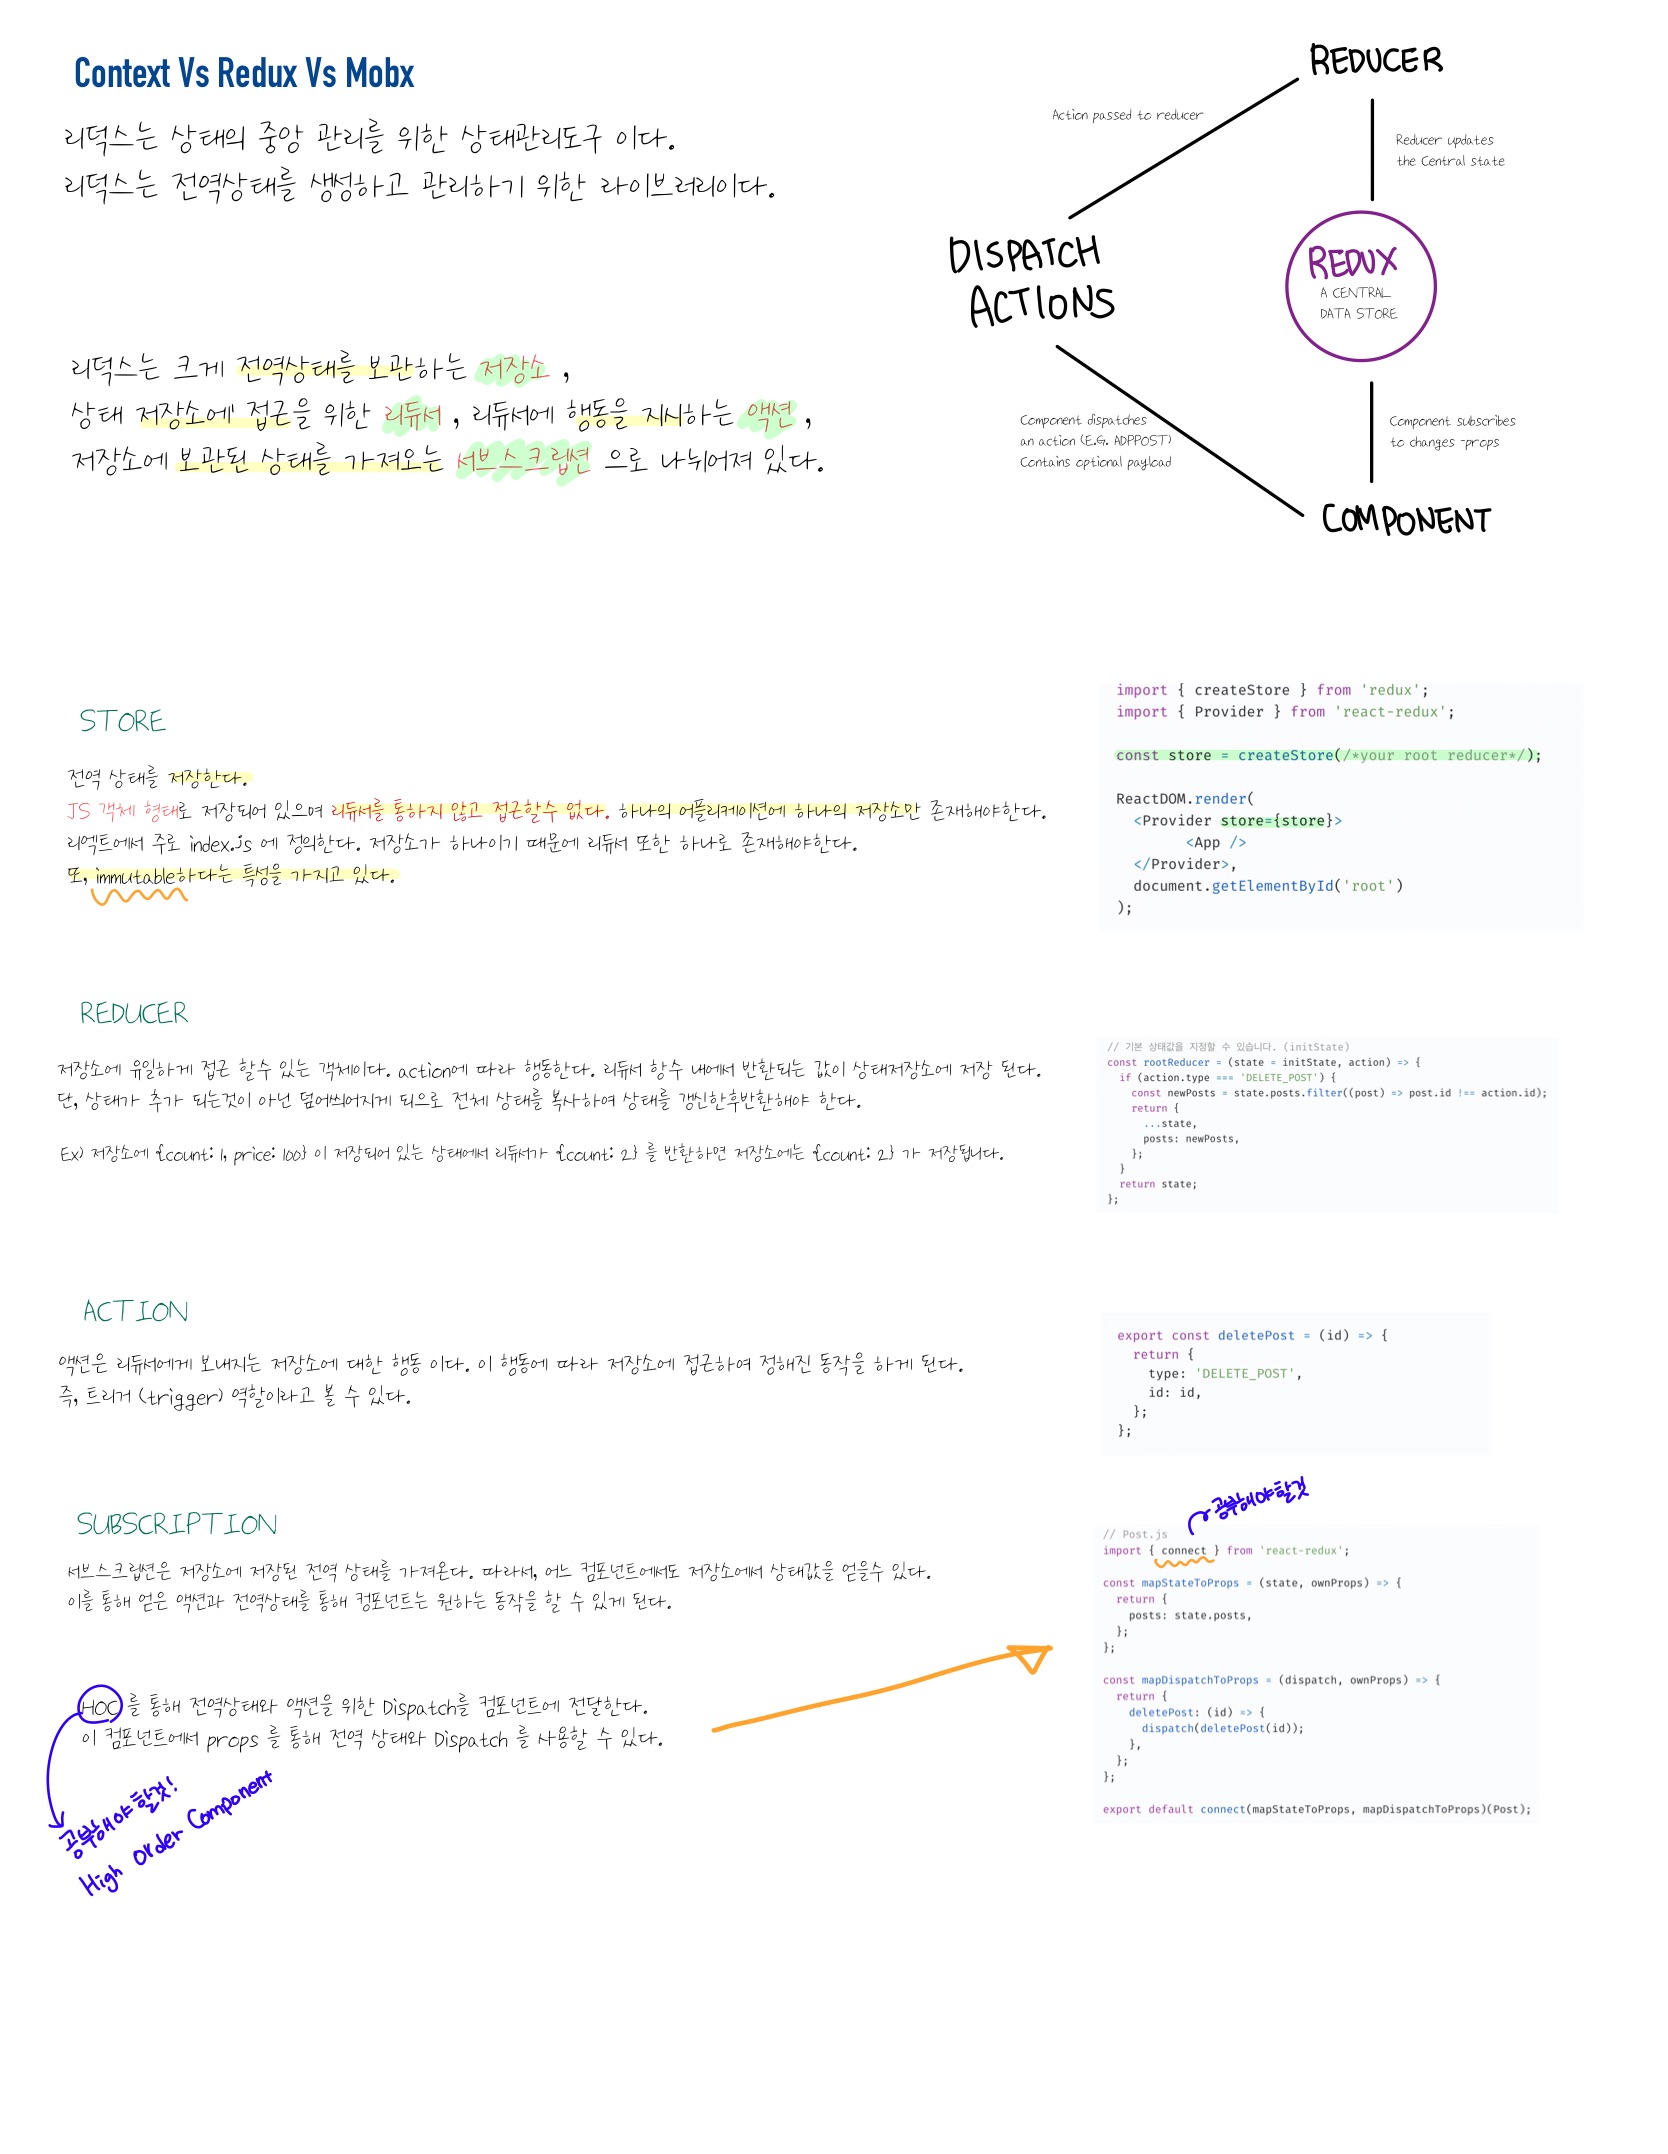 Context Vs Redux Vs Mobx
리덕스는 상태의 중앙 관리를 위한 상태관리도구 이다.
리덕스는 전역상태를 생성하고 관리하기 위한 라이브러리이다.
리덕스는 크게 전역상태를 보관하는 저장소 ,
상태 저장소에 접근을 위한 리듀서 , 리듀서에 행동을 지시하는 액션 ,
저장소에 보관된 상태를 가져오는 서브스크립션 으로 나뉘어져 있다.
REDUCER
Action passed to reducer
Reducer updates
the Central state
DISPATCH
ACTIONS
REDUX
A CENTRAL
DATA STORE
Component dispatches
an action (E.G. ADPPOST)
Contains optional payload
Component subscribes
to changes -props
COMPONENT
STORE
전역 상태를 저장한다.
JS 객체 형태로 저장되어 있으며 리듀서를 통하지 않고 접근할수 없다. 하나의 어플리케이션에 하나의 저장소만 존재해야한다.
리엑트에서 주로 index.js 에 정의한다. 저장소가 하나이기 때문에 리듀서 또한 하나로 존재해야한다.
또, immutable하다는 특성을 가지고 있다.
import { createStore } from 'redux';
import { Provider } from 'react-redux';
const store = createStore(/*your root reducer*/);
ReactDOM.render(
<Provider store={store}>
<App />
</Provider>,
document.getElementById('root')
);
REDUCER
저장소에 유일하게 접근 할수 있는 객체이다. action에 따라 행동한다. 리듀서 함수 내에서 반환되는 값이 상태저장소에 저장 된다.
단, 상태가 추가 되는것이 아닌 덮어씌어지게 되으로 전체 상태를 복사하여 상태를 갱신한후반환해야 한다.
Ex) 저장소에 {count: 1, price: 100} 이 저장되어 있는 상태에서 리듀서가 {count: 2} 를 반환하면 저장소에는 {count: 2} 가 저장됩니다.
// 기본 상태값을 지정할 수 있습니다. (initState)
const rootReducer = (state = initState, action) => {
if (action.type === 'DELETE_POST') {
const newPosts = state.posts.filter((post) => post.id !== action.id);
return {
...state,
posts: newPosts,
};
}
return state;
};
ACTION
액션은 리듀서에게 보내지는 저장소에 대한 행동 이다. 이 행동에 따라 저장소에 접근하여 정해진 동작을 하게 된다.
즉, 트리거 (trigger) 역할이라고 볼 수 있다.
export const deletePost = (id) => {
return {
type: 'DELETE_POST',
id: id,
};
};
SUBSCRIPTION
서브스크립션은 저장소에 저장된 전역 상태를 가져온다. 따라서, 어느 컴포넌트에서도 저장소에서 상태값을 얻을수 있다.
이를 통해 얻은 액션과 전역상태를 통해 컴포넌트는 원하는 동작을 할 수 있게 된다.
HOC 를 통해 전역상태와 액션을 위한 Dispatch를 컴포넌트에 전달한다.
이 컴포넌트에서 props 를 통해 전역 상태와 Dispatch 를 사용할 수 있다.
공부해야 할것!
High Order Component
공부해야할것
// Post.js
import { connect } from 'react-redux';
const mapStateToProps = (state, ownProps) => {
return {
posts: state.posts,
};
};
const mapDispatchToProps = (dispatch, ownProps) => {
return {
deletePost: (id) => {
dispatch(deletePost(id));
},
};
};
export default connect(mapStateToProps, mapDispatchToProps)(Post);